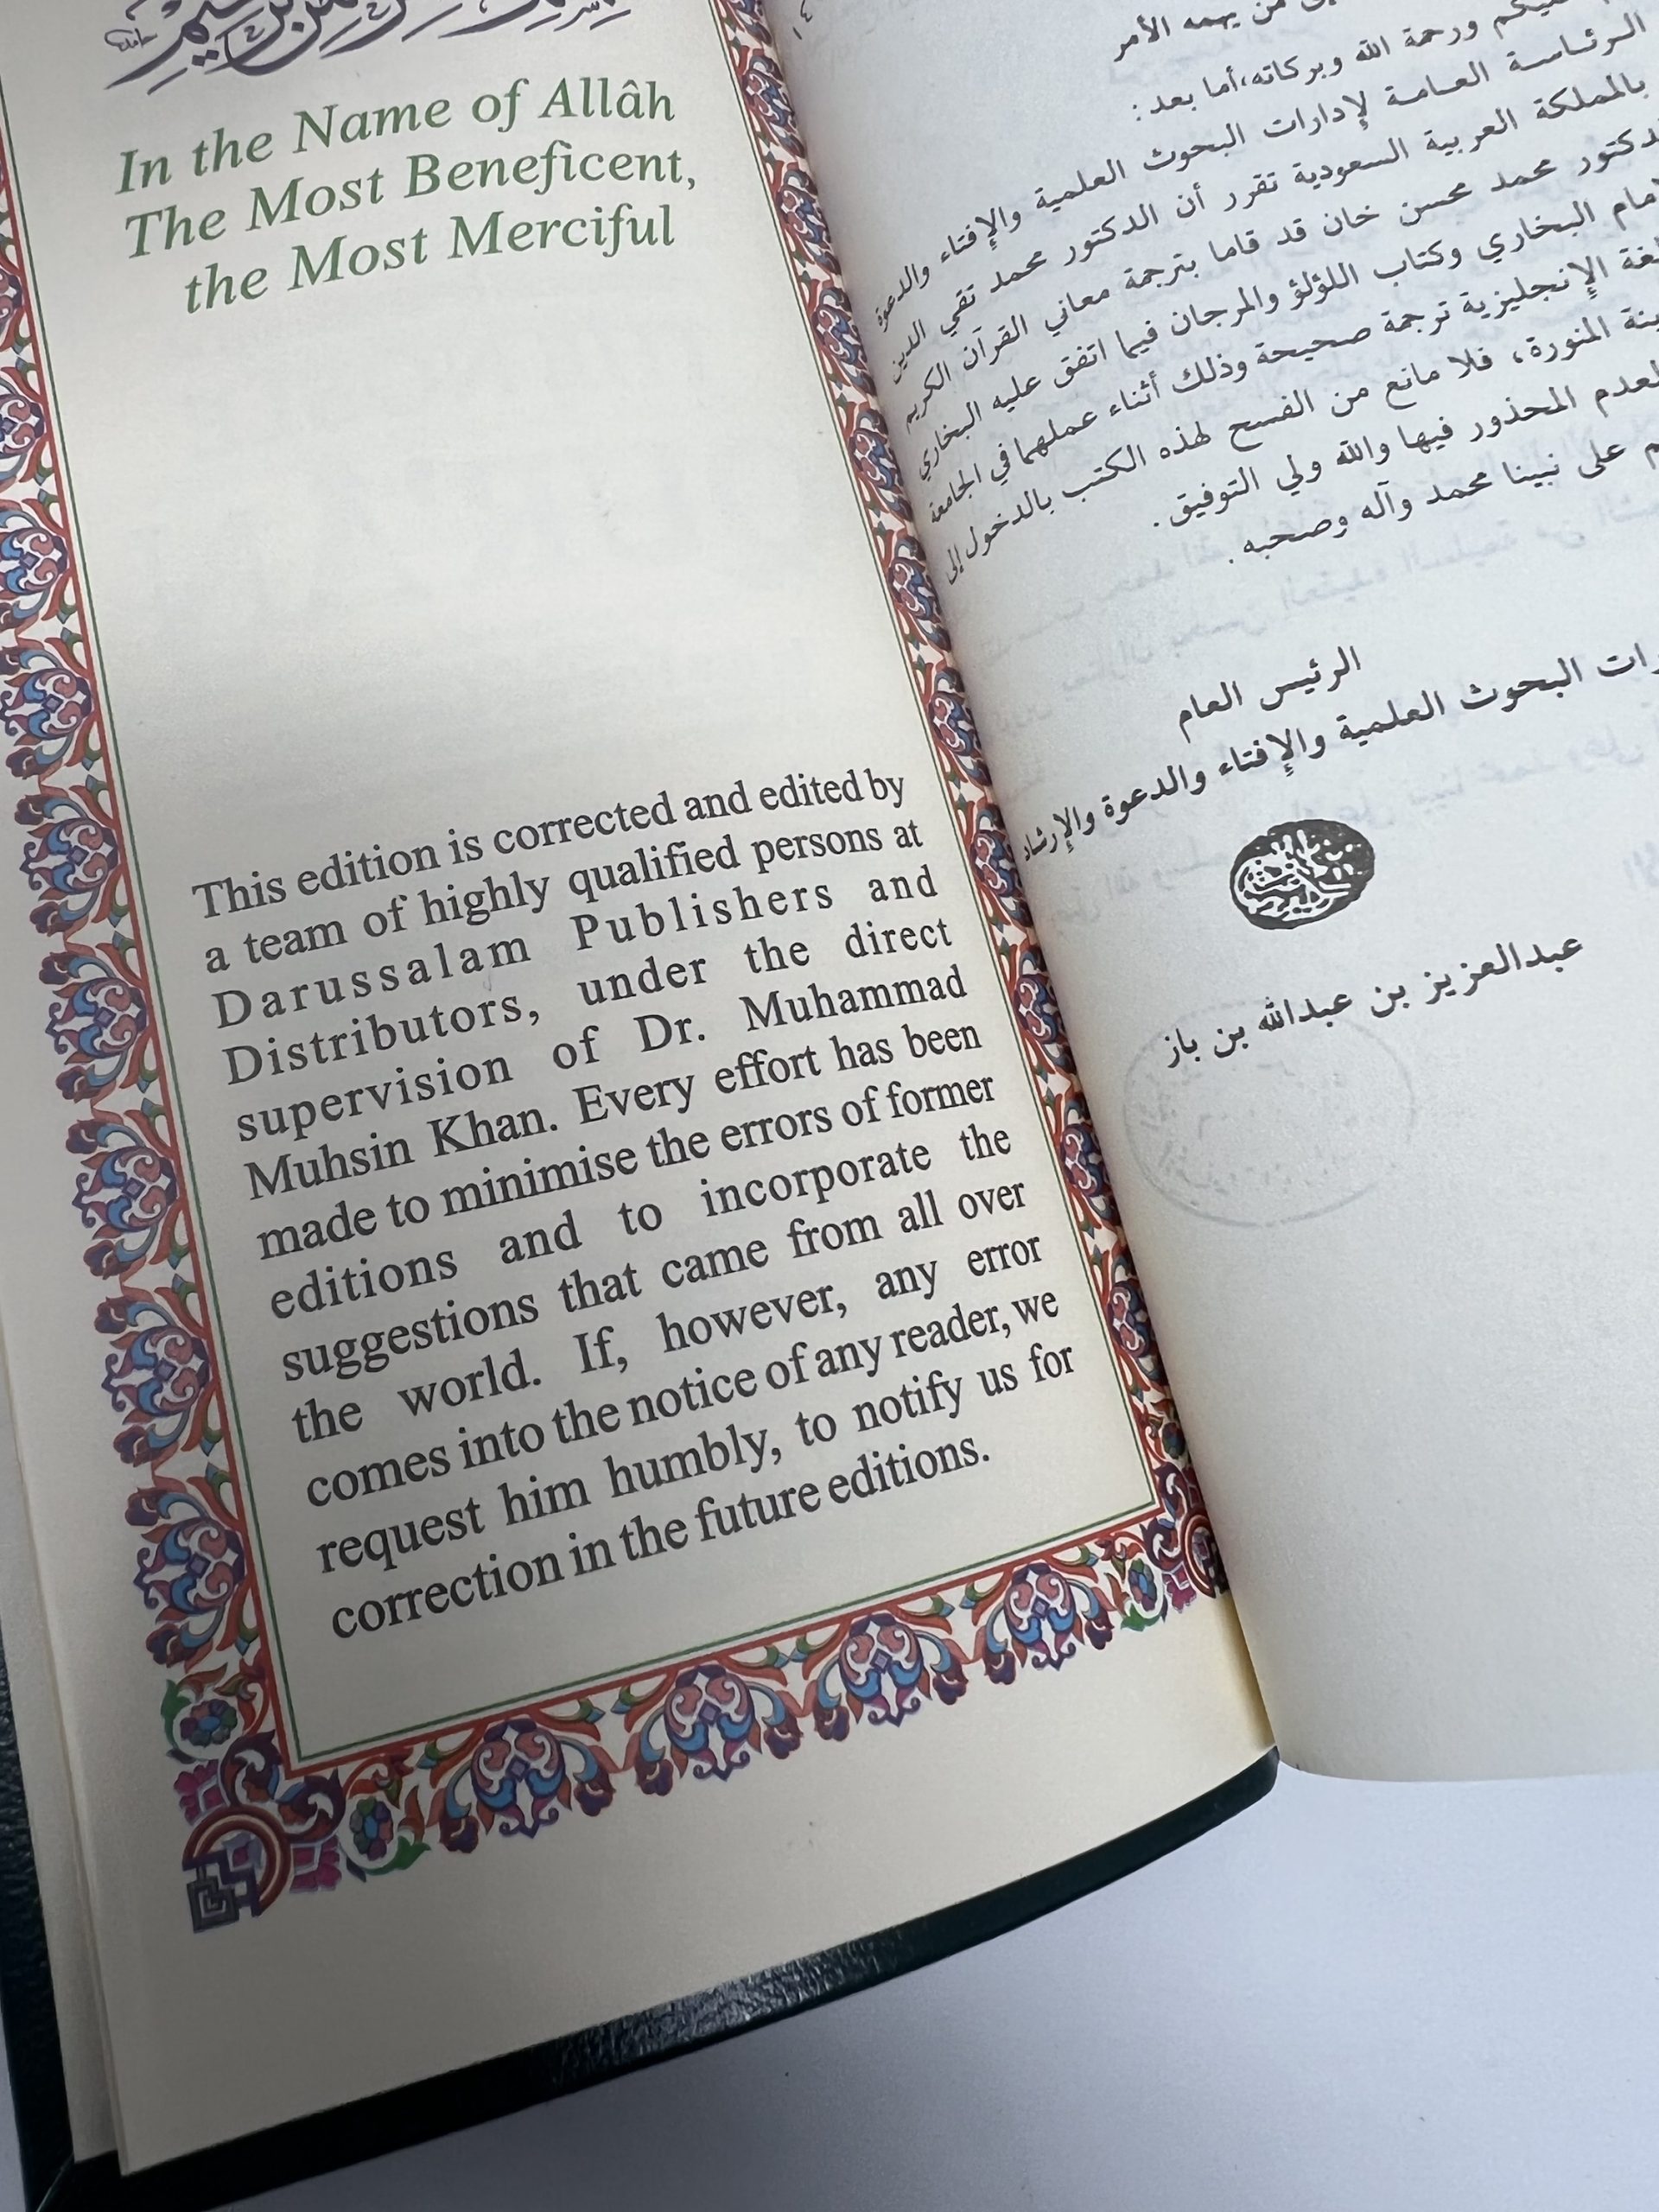 In the Name of Allâh
The Most Beneficent,
the Most Merciful
This edition is corrected and edited by
a team of highly qualified persons at
Darussalam Publishers and
Distributors, under the direct
supervision of Dr. Muhammad
Muhsin Khan. Every effort has been
made to minimise the errors of former
editions and to incorporate the
suggestions that came from all over
the world. If, however, any error
comes into the notice of any reader, we
request him humbly, to notify us for
correction in the future editions.
من يهمه الأمر
ورحمة الله وبركاته،أما بعد:
الرئاسة العامة لإدارات البحوث العلمية والإفتاء والدعوة
بالمملكة العربية السعودية تقرر أن الدكتور محمد تقي الدين
محمد محسن خان قد قاما بترجمة معاني القرآن الكريم
البخاري وكتاب اللؤلؤ والمرجان فيما اتفق عليه البخاري
الإنجليزية ترجمة صحيحة وذلك أثناء عملهما في الجامعة
المنورة، فلا مانع من الفسح لهذه الكتب بالدخول إلى
المحذور فيها والله ولي التوفيق.
على نبينا محمد وآله وصحبه.
الرئيس العام
البحوث العلمية والإفتاء والدعوة والإرشاد
عبدالعزيز بن عبدالله بن باز